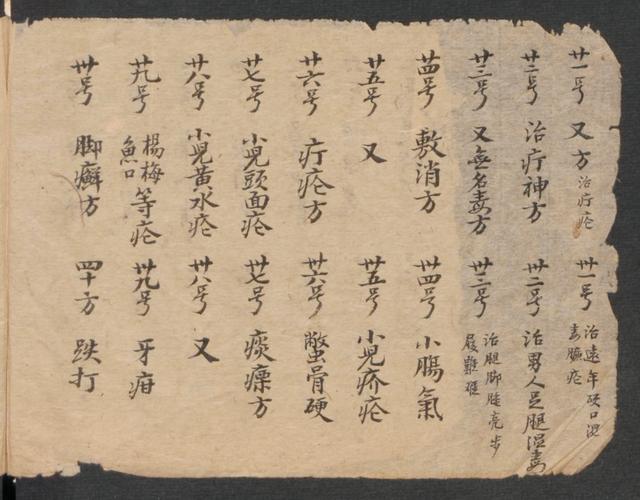 廿一号 又方 治疔疮 卅一号 治遠年硬口湿毒臁疮
廿二号 治疔神方 卅二号 治男人足腿湿毒
廿三号 又無名毒方 卅三号 治腿脚腫亮步履難
廿四号 敷消方 卅四号 小腸氣
廿五号 又 卅五号 小児疥疮
廿六号 疔疮方 卅六号 鱉骨硬
廿七号 小児頭面疮 卅七号 痰瘰方
廿八号 小児黄水疮 卅八号 又
廿九号 楊梅魚口等疮 卅九号 牙疳
卅号 脚癬方 四十方 跌打